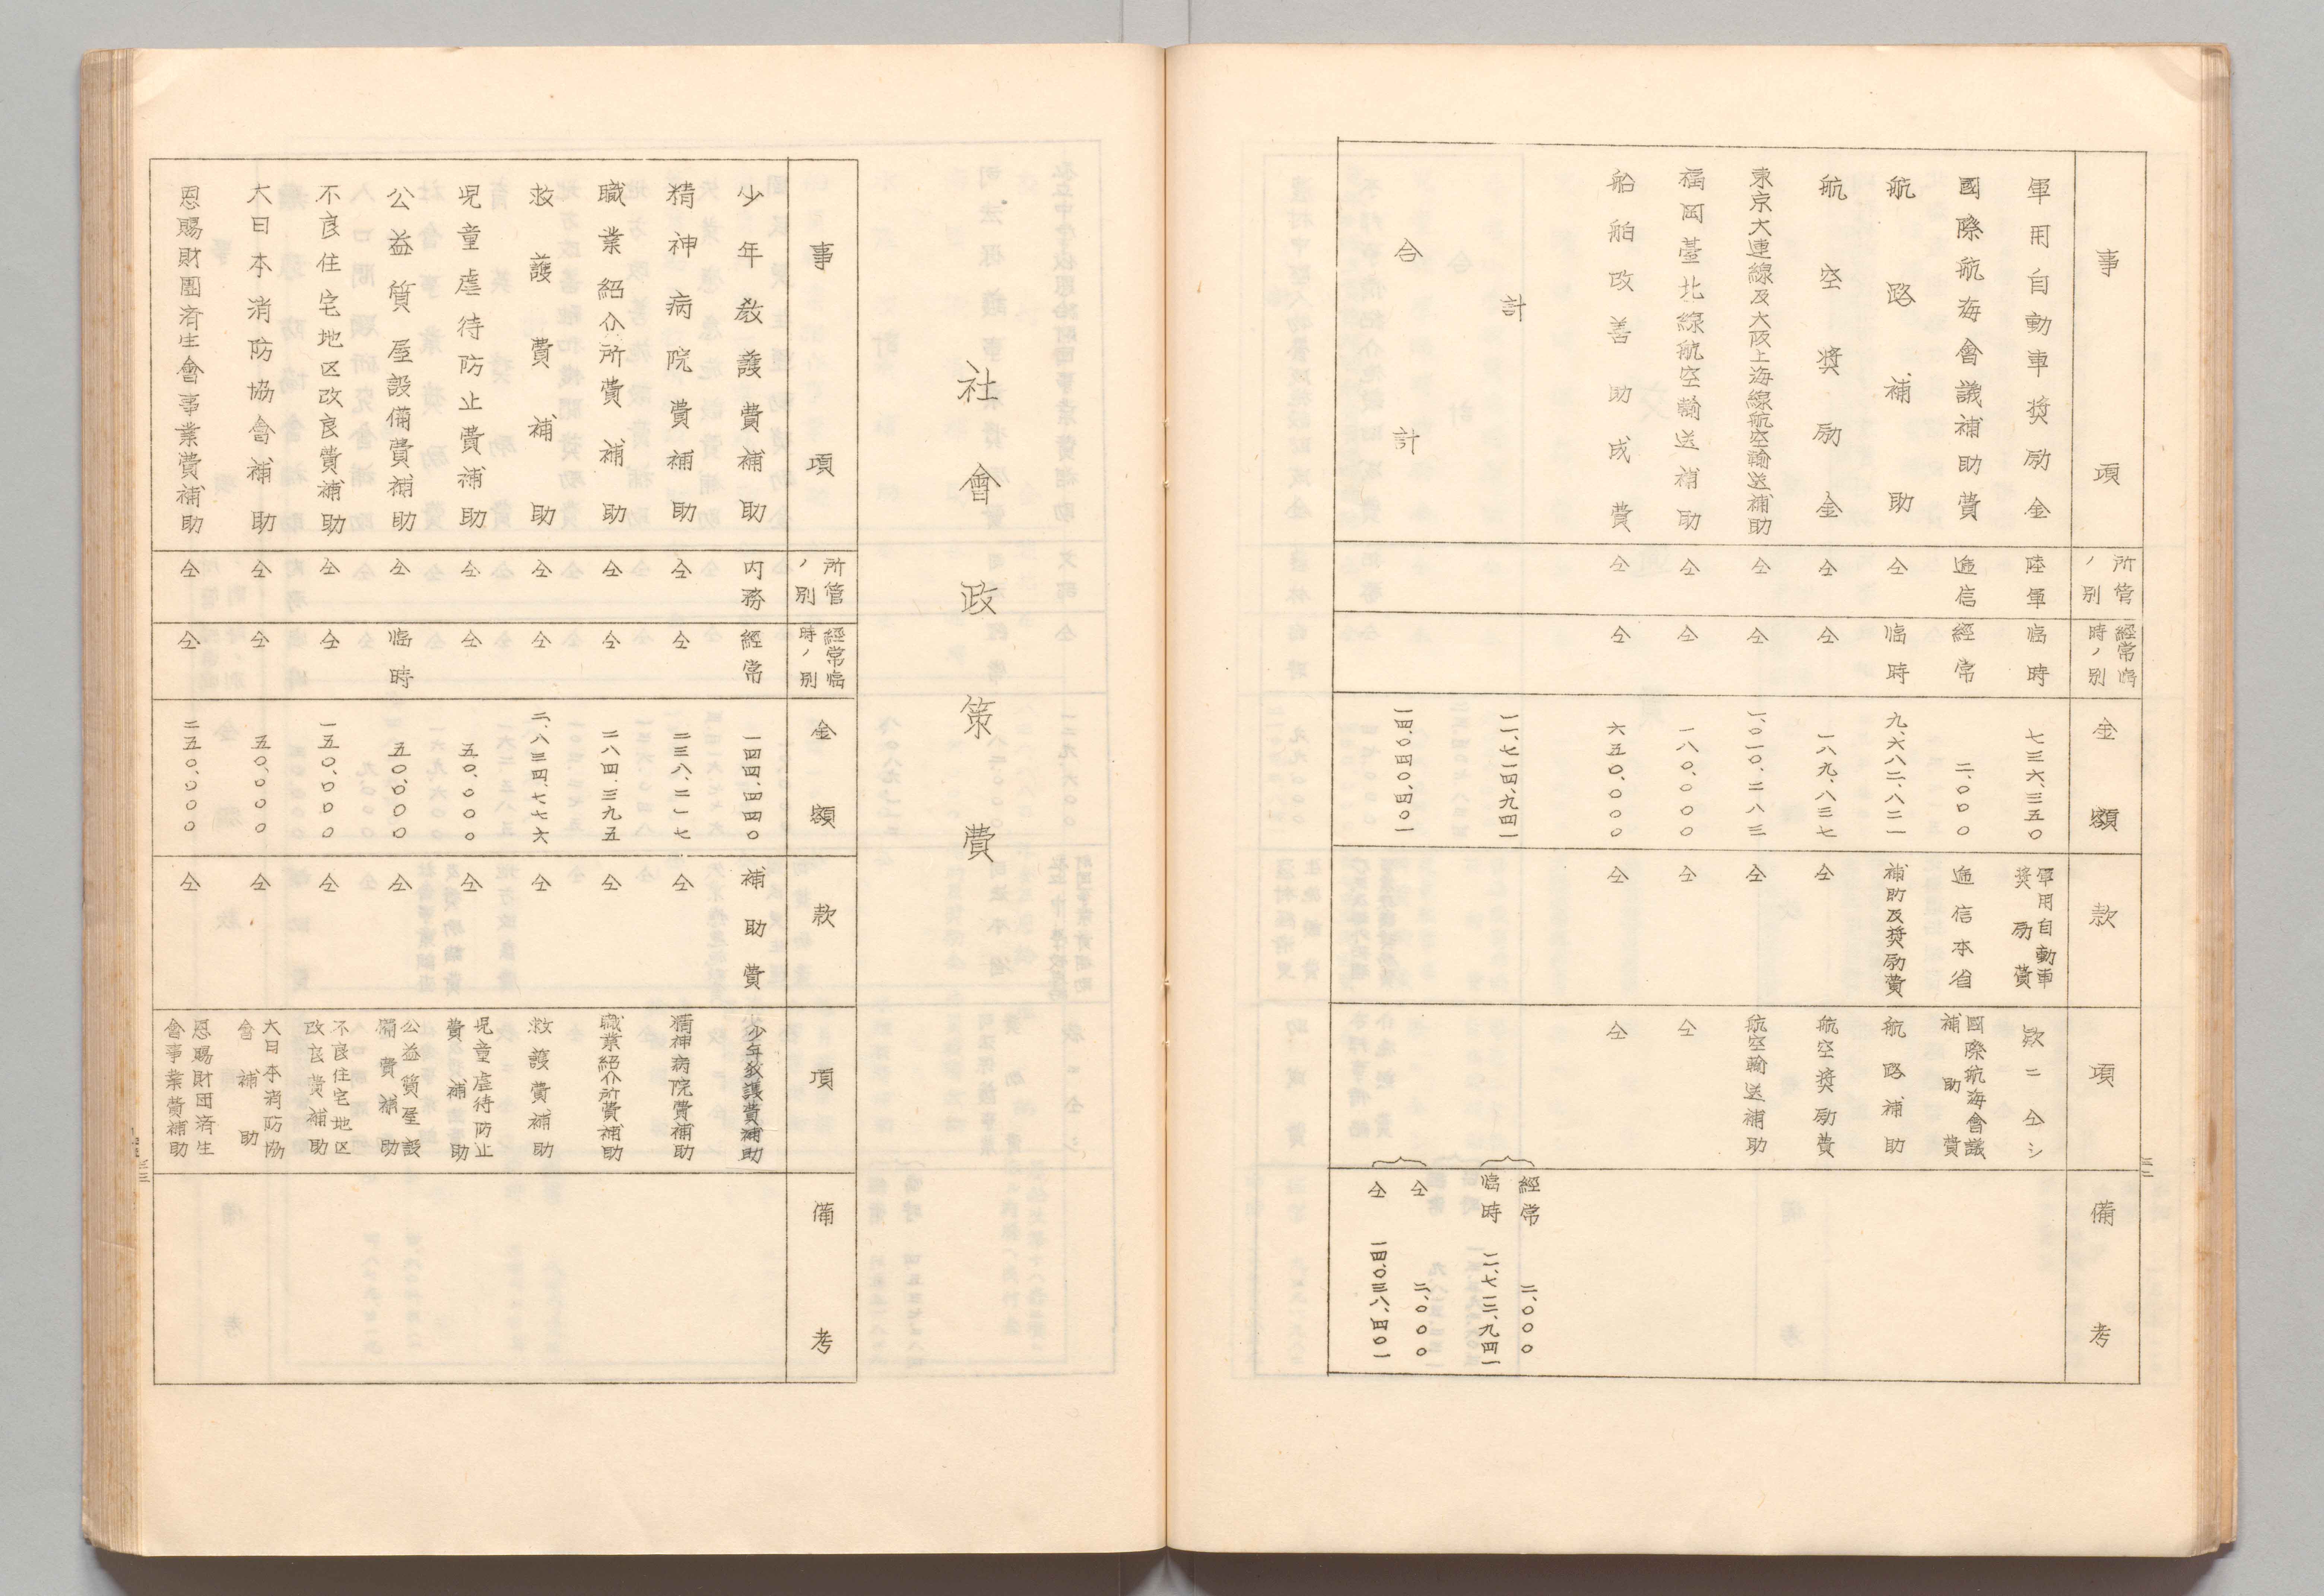 事項 所管ノ別 経常臨時ノ別 金額 款 項 備考
軍用自動車奨励金 陸軍 臨時 七三六、三五〇 軍用自動車奨励費 款ニ仝シ
國際航海會議補助費 逓信 経常 二、〇〇〇 逓信本省 國際航海會議補助費
航路補助 仝 臨時 九、六八二、八二一 補助及奨励費 航路補助
航空奨励金 仝 仝 一八九、八三七 仝 航空奨励費
東京大連線及大阪上海線航空輸送補助 仝 仝 一、〇一〇、二八三 仝 航空輸送補助
福岡臺北線航空輸送補助 仝 仝 一八〇、〇〇〇 仝 仝
船舶改善助成費 仝 仝 六五〇、〇〇〇 仝 仝
計 一一、七一四、九四一 経常 二、〇〇〇
臨時 一一、七一二、九四一
合計 一四、〇四〇、四〇一 仝 二、〇〇〇
仝 一四、〇三八、四〇一
二二
社會政策費
事項 所管ノ別 経常臨時ノ別 金額 款 項 備考
少年教護費補助 内務 経常 一四四、四四〇 補助費 少年教護費補助
精神病院費補助 仝 仝 二三八、二一七 仝 精神病院費補助
職業紹介所費補助 仝 仝 二八四、三九五 仝 職業紹介所費補助
救護費補助 仝 仝 二、八三四、七七六 仝 救護費補助
児童虐待防止費補助 仝 仝 五〇、〇〇〇 仝 児童虐待防止費補助
公益質屋設備費補助 仝 臨時 五〇、〇〇〇 仝 公益質屋設備費補助
不良住宅地区改良費補助 仝 仝 一五〇、〇〇〇 仝 不良住宅地区改良費補助
大日本消防協會補助 仝 仝 五〇、〇〇〇 仝 大日本消防協會補助
恩賜財團済生會事業費補助 仝 仝 二五〇、〇〇〇 仝 恩賜財団済生會事業費補助
二三